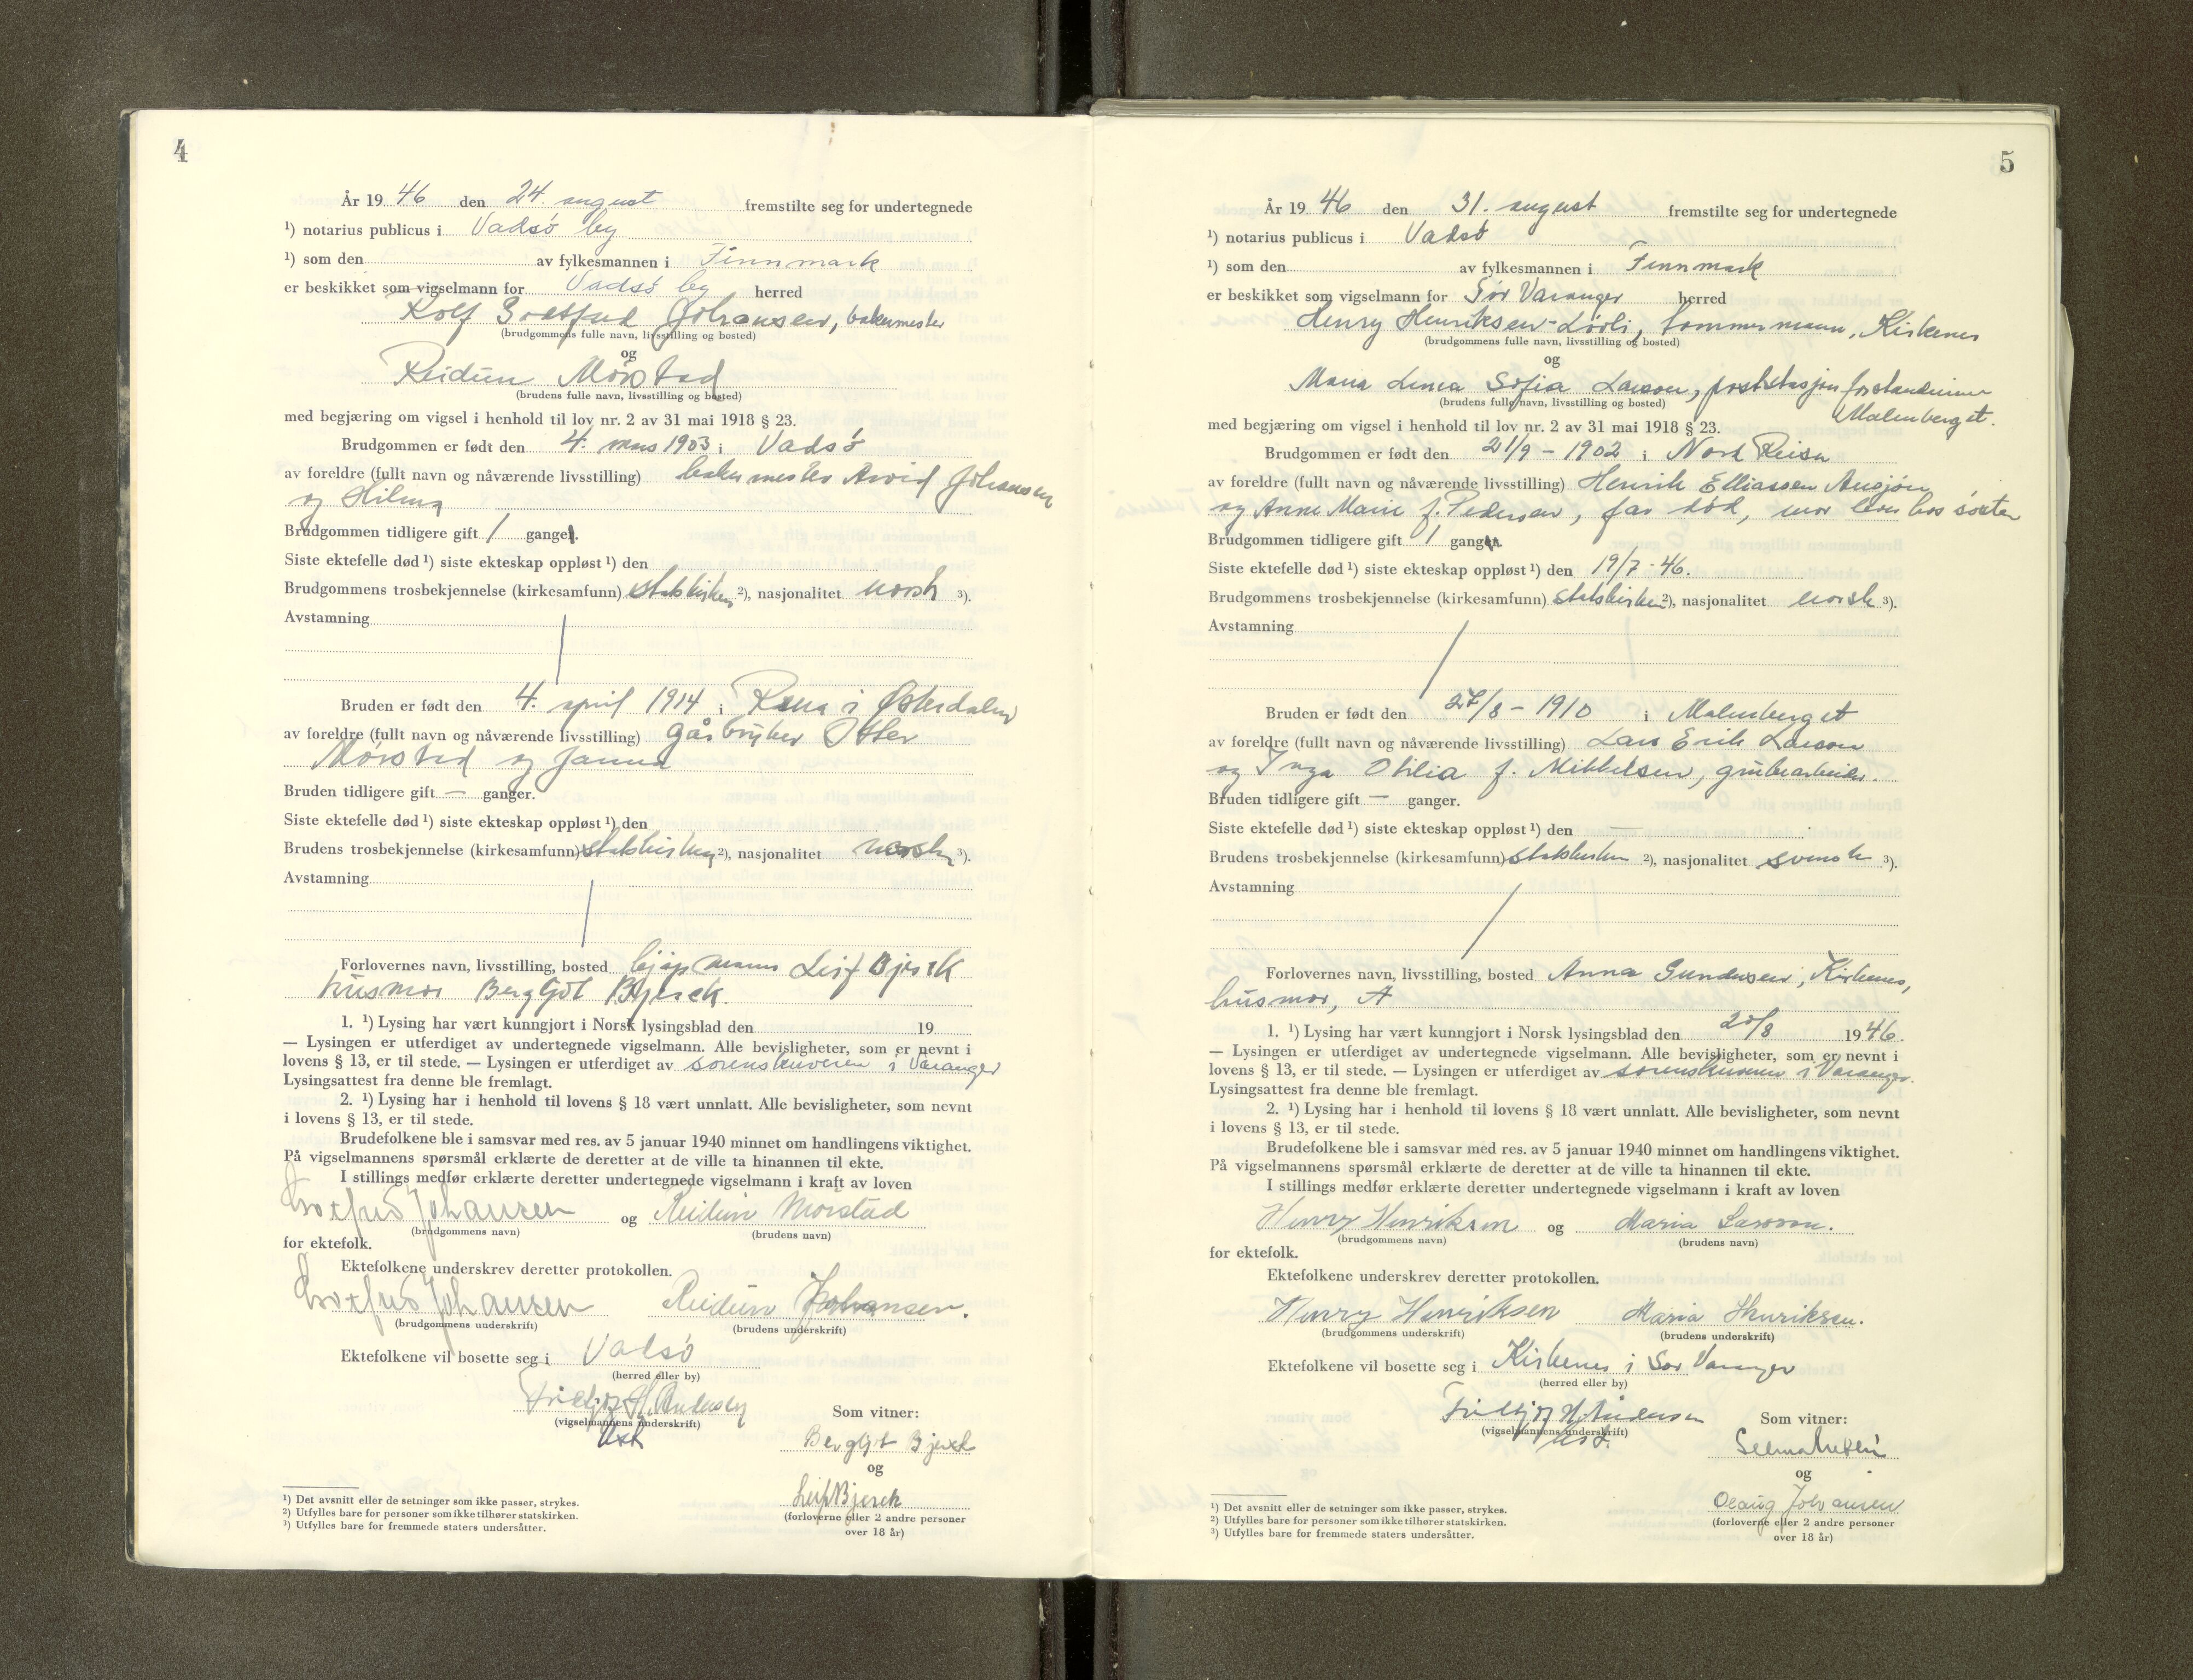 4
År 19 46 den 24. august fremstilte seg for undertegnede
¹) notarius publicus i Vadsö by
¹) som den av fylkesmannen i Finnmark
er beskikket som vigselmann for Vadsö by herred
Rolf Gotfred Johansen, bakermester
(brudgommens fulle navn, livsstilling og bosted)
og
Reidun Mörstad
(brudens fulle navn, livsstilling og bosted)
med begjæring om vigsel i henhold til lov nr. 2 av 31 mai 1918 § 23.
Brudgommen er født den 4. mars 1903 i Vadsö
av foreldre (fullt navn og nåværende livsstilling) bakermester Arvid Johansen
og Hilma
Brudgommen tidligere gift 1 gang.
Siste ektefelle død ¹) siste ekteskap oppløst ¹) den
Brudgommens trosbekjennelse (kirkesamfunn) statskirken ²), nasjonalitet norsk ³).
Avstamning
Bruden er født den 4. april 1914 i Rena i Østerdalen
av foreldre (fullt navn og nåværende livsstilling) gårbruker
Mörstad og Janna
Bruden tidligere gift — ganger.
Siste ektefelle død ¹) siste ekteskap oppløst ¹) den
Brudens trosbekjennelse (kirkesamfunn) statskirken ²), nasjonalitet norsk ³).
Avstamning
Forlovernes navn, livsstilling, bosted kjøpmann Leif Bjerck
husmor Bergljot Bjerck.
1. ¹) Lysing har vært kunngjort i Norsk lysingsblad den 19
— Lysingen er utferdiget av undertegnede vigselmann. Alle bevisligheter, som er nevnt i
lovens § 13, er til stede. — Lysingen er utferdiget av sorenskriveren i Varanger
Lysingsattest fra denne ble fremlagt.
2. ¹) Lysing har i henhold til lovens § 18 vært unnlatt. Alle bevisligheter, som nevnt
i lovens § 13, er til stede.
Brudefolkene ble i samsvar med res. av 5 januar 1940 minnet om handlingens viktighet.
På vigselmannens spørsmål erklærte de deretter at de ville ta hinannen til ekte.
I stillings medfør erklærte deretter undertegnede vigselmann i kraft av loven
Gotfred Johansen og Reidun Mörstad
(brudgommens navn) (brudens navn)
for ektefolk.
Ektefolkene underskrev deretter protokollen.
Gotfred Johansen Reidun Johansen.
(brudgommens underskrift) (brudens underskrift)
Ektefolkene vil bosette seg i Vadsö
(herred eller by)
Fridtjof H. Andersen
(vigselmannens underskrift)
Som vitner:
Bergljot Bjerck
og
Leif Bjerck
(forloverne eller 2 andre personer
over 18 år)
¹) Det avsnitt eller de setninger som ikke passer, strykes.
²) Utfylles bare for personer som ikke tilhører statskirken.
³) Utfylles bare for fremmede staters undersåtter.
5
År 19 46 den 31. august fremstilte seg for undertegnede
¹) notarius publicus i Vadsö
¹) som den av fylkesmannen i Finnmark
er beskikket som vigselmann for Sör Varanger herred
Henry Henriksen-Lövli, tömmermann, Kirkenes
(brudgommens fulle navn, livsstilling og bosted)
og
Maria Linea Sofia Larson, poststasjonforstanderinne
(brudens fulle navn, livsstilling og bosted) Malmberget.
med begjæring om vigsel i henhold til lov nr. 2 av 31 mai 1918 § 23.
Brudgommen er født den 21/9 - 1902 i Nord Reisa
av foreldre (fullt navn og nåværende livsstilling) Henrik Elliassen
og Anne Marie f. Pedersen, far död, mor lever hos söster
Brudgommen tidligere gift 1 gang.
Siste ektefelle død ¹) siste ekteskap oppløst ¹) den 19/7 - 46.
Brudgommens trosbekjennelse (kirkesamfunn) statskirken ²), nasjonalitet norsk ³).
Avstamning
Bruden er født den 27/8 - 1910 i Malmberget
av foreldre (fullt navn og nåværende livsstilling) Lars Erik Larson
og Inga Otilia f. Mikkelsen, grubearbeider.
Bruden tidligere gift — ganger.
Siste ektefelle død ¹) siste ekteskap oppløst ¹) den —
Brudens trosbekjennelse (kirkesamfunn) statskirken ²), nasjonalitet svensk ³).
Avstamning
Forlovernes navn, livsstilling, bosted Anna Gundersen, Kirkenes,
husmor, A
1. ¹) Lysing har vært kunngjort i Norsk lysingsblad den /8 1946.
— Lysingen er utferdiget av undertegnede vigselmann. Alle bevisligheter, som er nevnt i
lovens § 13, er til stede. — Lysingen er utferdiget av sorenskriveren i Varanger.
Lysingsattest fra denne ble fremlagt.
2. ¹) Lysing har i henhold til lovens § 18 vært unnlatt. Alle bevisligheter, som nevnt
i lovens § 13, er til stede.
Brudefolkene ble i samsvar med res. av 5 januar 1940 minnet om handlingens viktighet.
På vigselmannens spørsmål erklærte de deretter at de ville ta hinannen til ekte.
I stillings medfør erklærte deretter undertegnede vigselmann i kraft av loven
Henry Henriksen og Maria Larsson.
(brudgommens navn) (brudens navn)
for ektefolk.
Ektefolkene underskrev deretter protokollen.
Henry Henriksen Maria Henriksen.
(brudgommens underskrift) (brudens underskrift)
Ektefolkene vil bosette seg i Kirkenes i Sör Varanger
(herred eller by)
Fridtjof H. Andersen
(vigselmannens underskrift)
Som vitner:
Selma
og
Olaug Johansen
(forloverne eller 2 andre personer
over 18 år)
¹) Det avsnitt eller de setninger som ikke passer, strykes.
²) Utfylles bare for personer som ikke tilhører statskirken.
³) Utfylles bare for fremmede staters undersåtter.